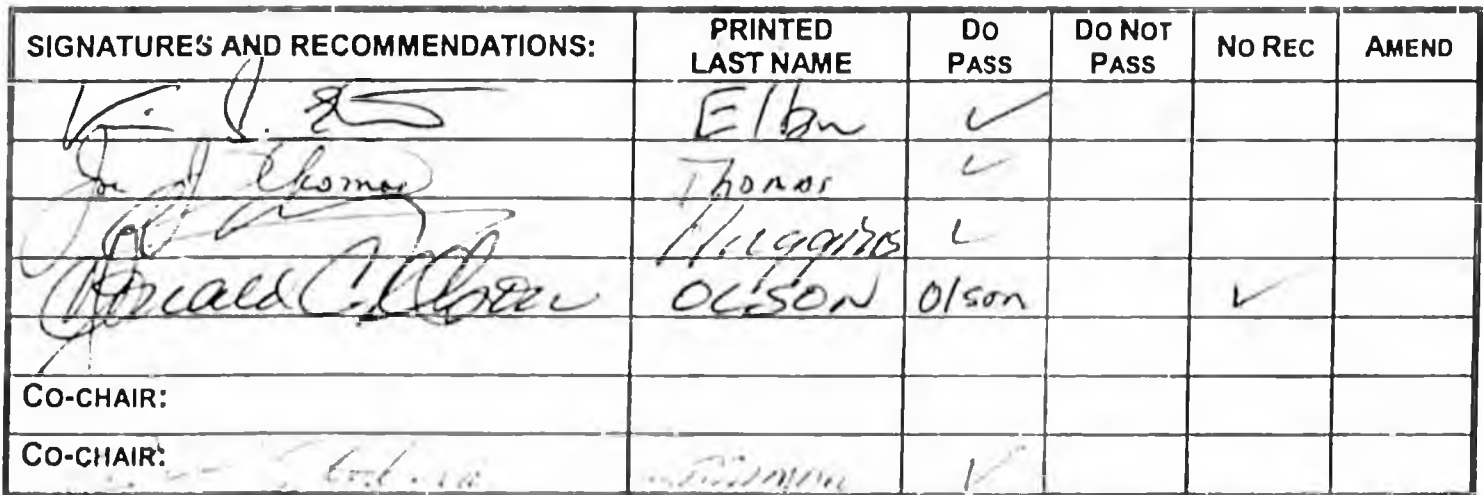 SIGNATURES AND RECOMMENDATIONS: PRINTED LAST NAME DO PASS DO NOT PASS NO REC AMEND
✓
Thomas Thomas ✓
Huggins ✓
Donald C. Olson OLSON Olson ✓
CO-CHAIR:
CO-CHAIR: ✓